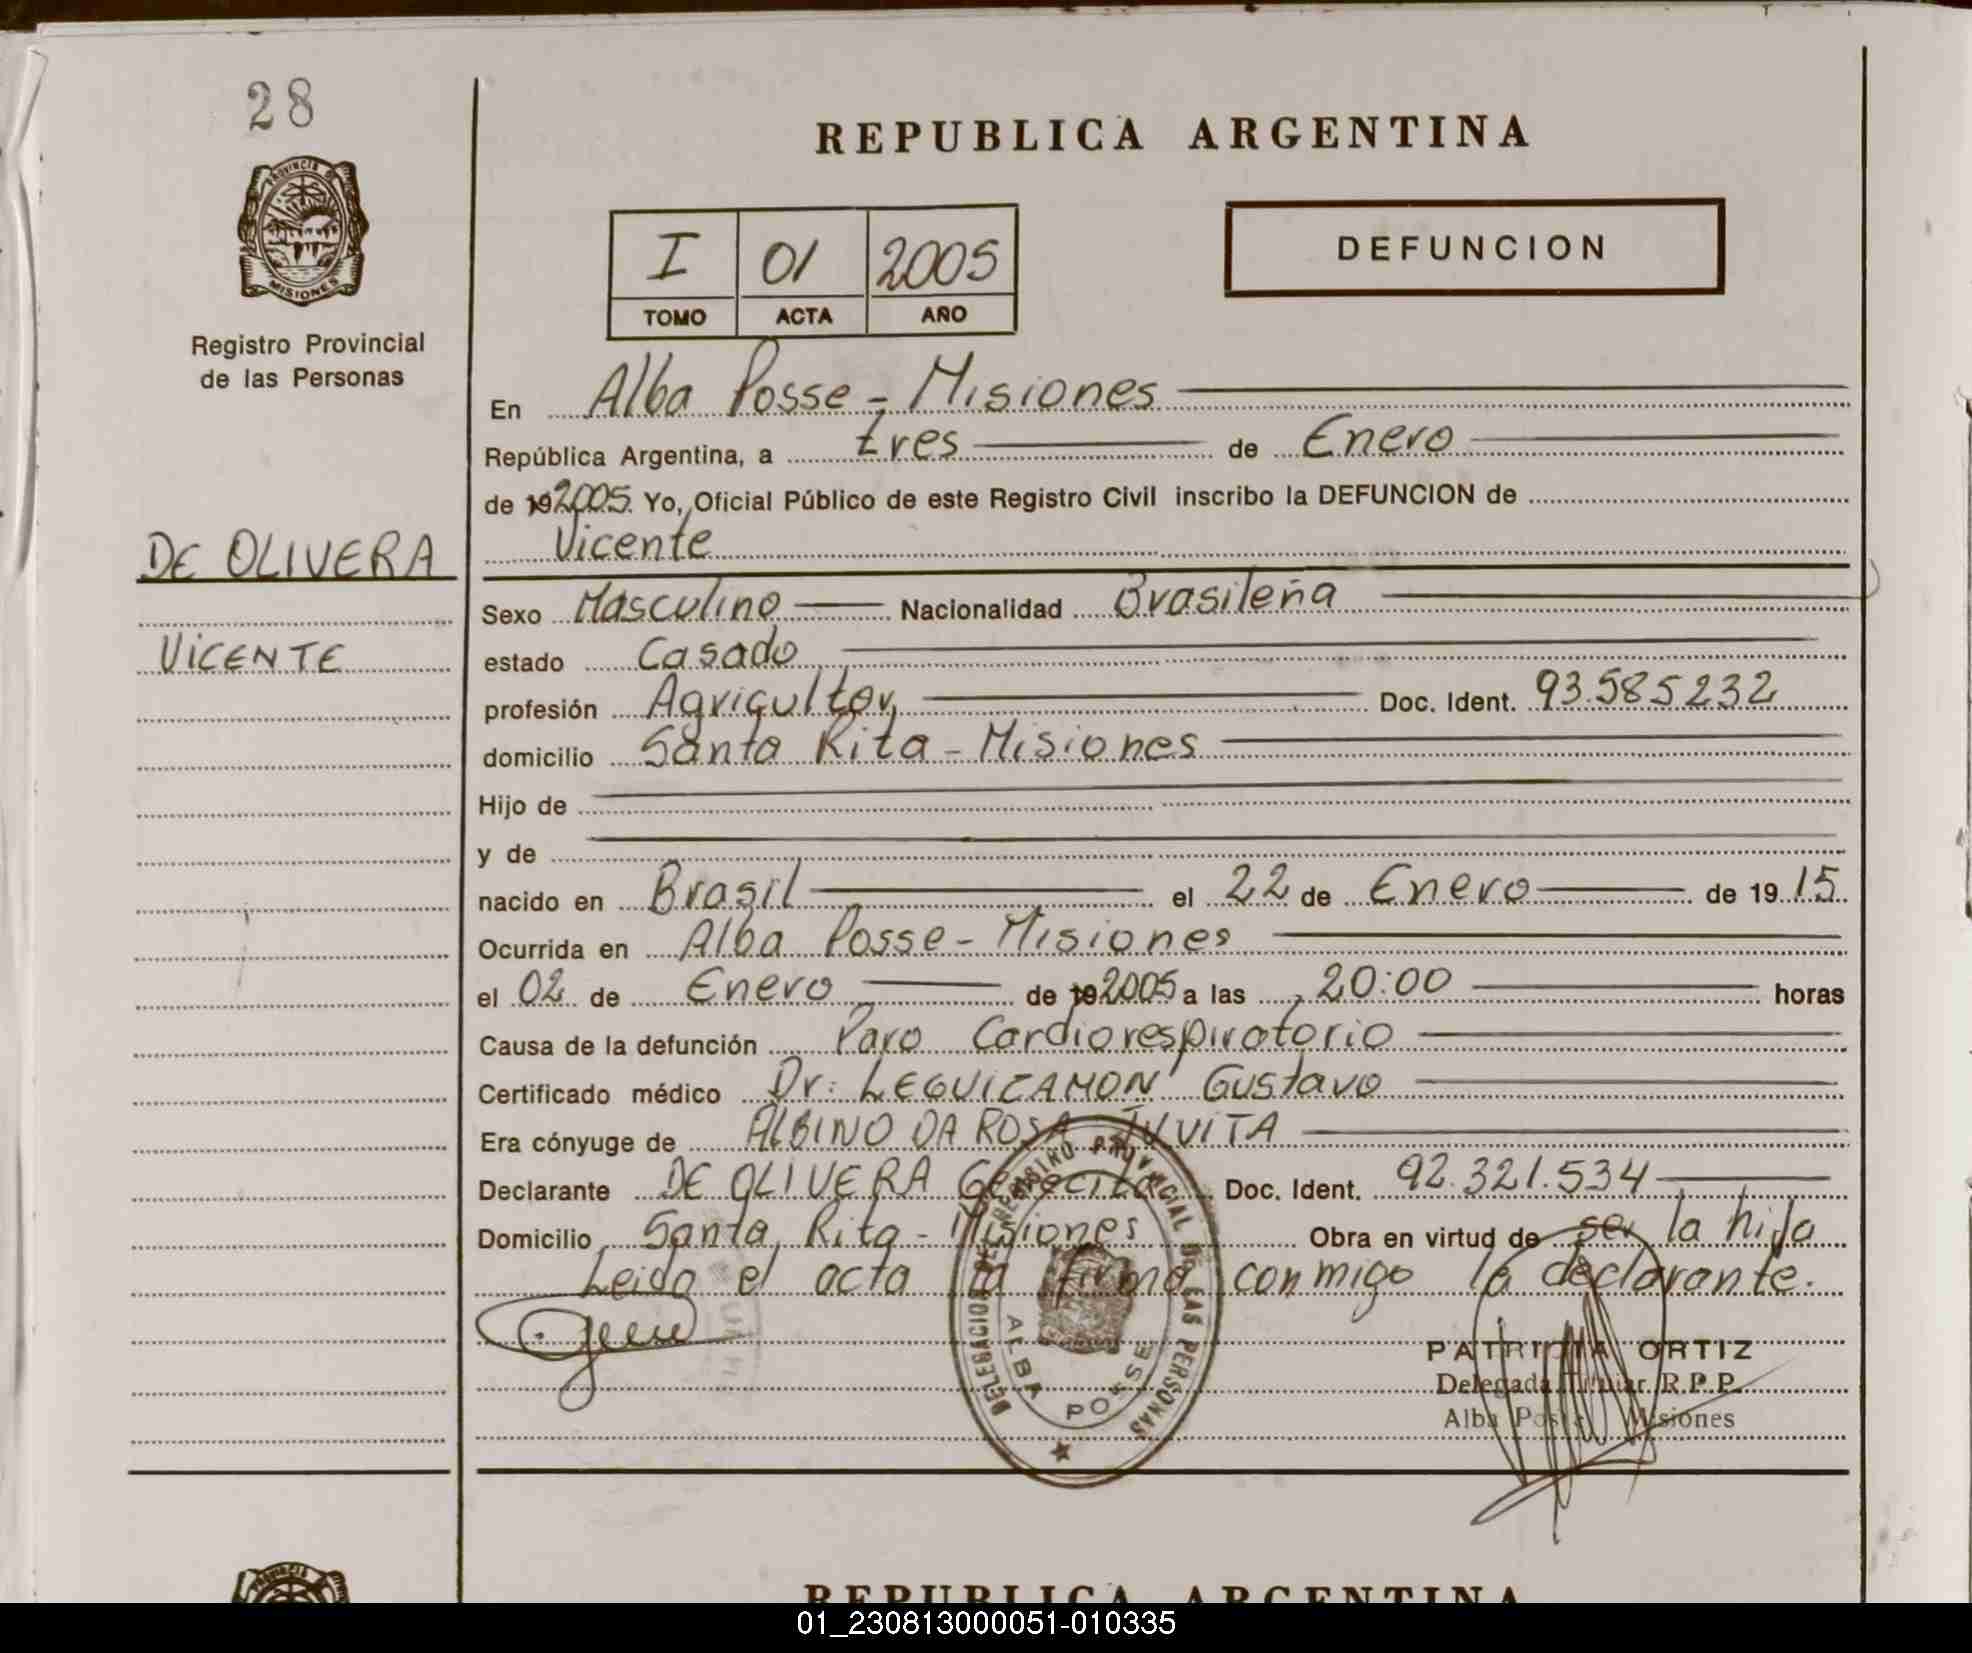 28
PROVINCIA DE
MISIONES
Registro Provincial
de las Personas
DE OLIVERA
VICENTE
REPUBLICA ARGENTINA
I 01 2005
TOMO ACTA AÑO
DEFUNCION
En Alba Posse - Misiones
República Argentina, a tres de Enero
de 192005. Yo, Oficial Público de este Registro Civil inscribo la DEFUNCION de
Vicente
Sexo Masculino Nacionalidad Brasileña
estado Casado
profesión Agricultor Doc. Ident. 93.585232
domicilio Santa Rita - Misiones
Hijo de
y de
nacido en Brasil el 22 de Enero de 1915
Ocurrida en Alba Posse - Misiones
el 02 de Enero de 192005 a las 20:00 horas
Causa de la defunción Paro Cardiorespiratorio
Certificado médico Dr: LEGUIZAMON Gustavo
Era cónyuge de ALBINO DA ROSA
Declarante DE OLIVERA Doc. Ident. 92.321.534
Domicilio Santa Rita - Misiones Obra en virtud de ser la hija
Leida el acta la firma conmigo la declarante.
DELEGACION DEL REGISTRO PROVINCIAL DE LAS PERSONAS
ALBA POSSE
PATRICIA ORTIZ
Delegada Titular R.P.P.
Alba Posse Misiones
PROVINCIA
REPUBLICA ARGENTINA
01_230813000051-010335